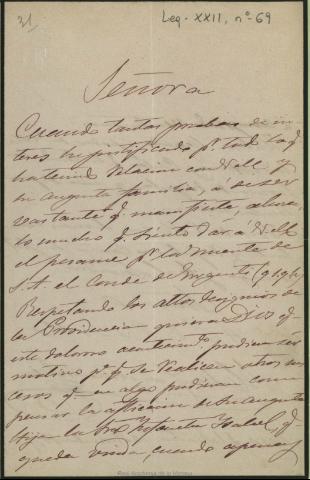 31.
Leg.-XXII, nº-69
Señora
Cuando tantas pruebas de in-
teres he justificado pr. todo lo q.
ha tenido relacion con V.M. y
su augusta familia, á de ser
vastante q. manifieste ahora
lo mucho q. siento dar á V.M.
el pesame pr. la muerte de
S.A. el Conde de Girgenti (q.e.g.e.)
Respetando los altos designios de
la Providencia quiera Dios q.
este doloroso acontecimto. pudiera ser
motivo pa. q. se realicen otros su-
cesos q. en algo pudieran com-
pensar la aflicción de su augusta
hija la Sra. Infanta Isabel, q.
queda viuda, cuando apenas
Real Academia de la Historia